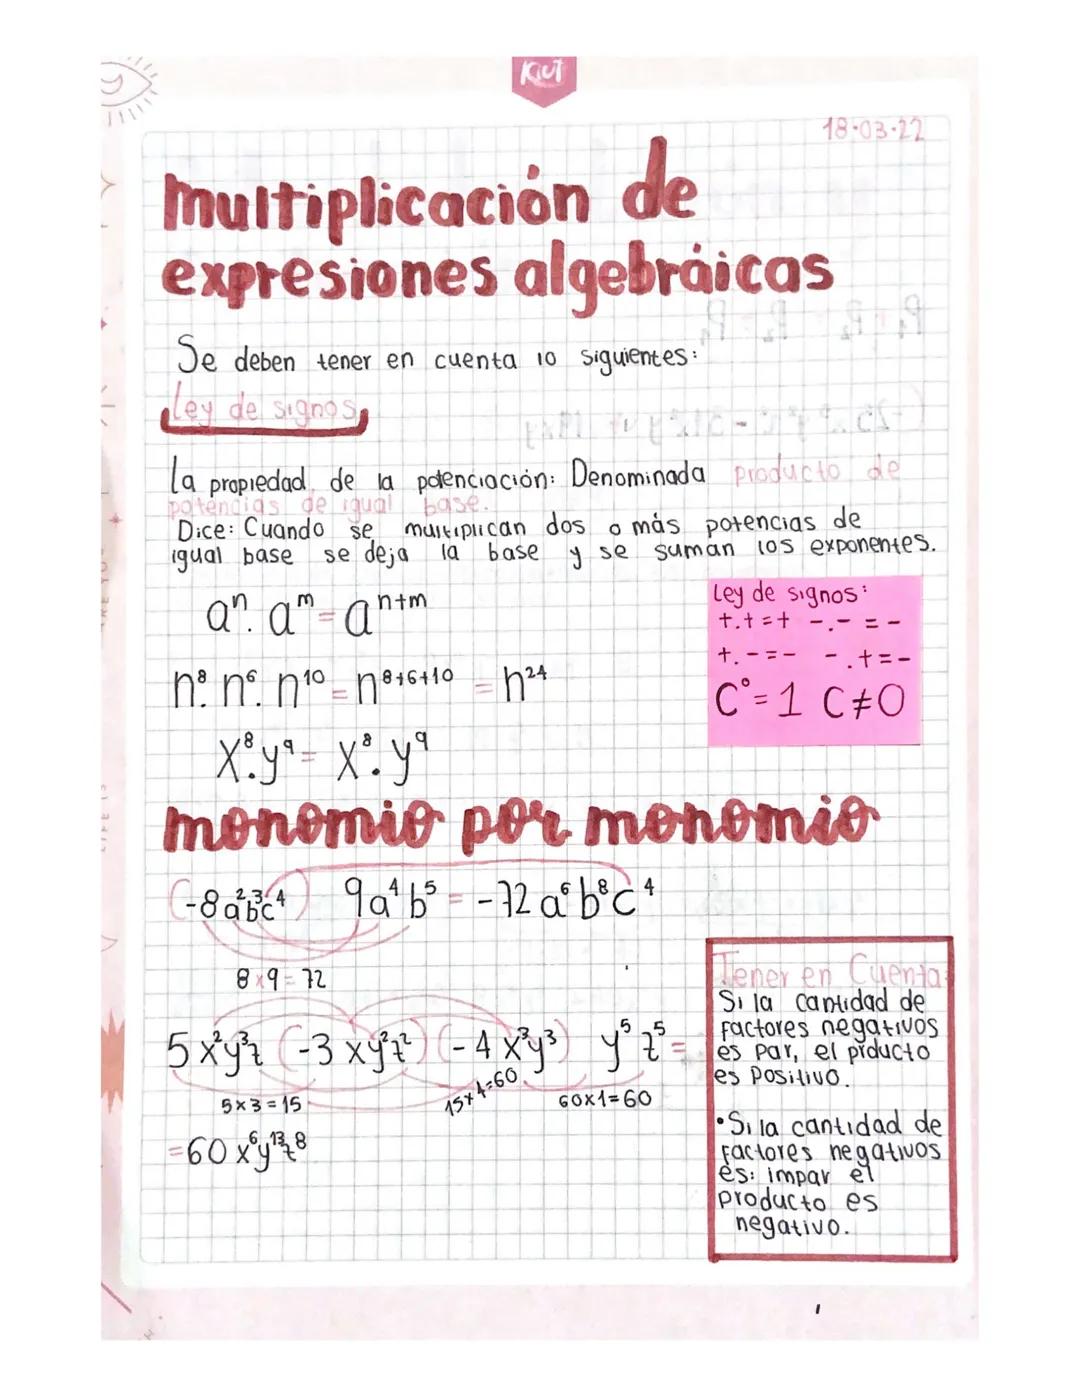 Kiut
18·03·22
multiplicación de
expresiones algebráicas
Se deben tener en cuenta lo siguientes:
Ley de signos
La propiedad de la potenciación: Denominada producto de
potencias de igual base.
Dice: Cuando se multiplican dos o más potencias de
igual base se deja la base y se suman los exponentes.
aⁿ · aᵐ = aⁿ⁺ᵐ
n⁸ · n⁶ · n¹⁰ = n⁸⁺⁶⁺¹⁰ = n²⁴
x⁸ · y⁹ = x⁸ · y⁹
Ley de signos:
+.+=+ -.- = -
+.-=- -.+=-
C°=1 C≠0
monomio por monomio
(-8a²b³c⁴) 9a⁴b⁵ = -72a⁶b⁸c⁴
8x9=72
5x²y³z (-3xy²z²) (-4x³y³) y⁵z⁵=
5x3=15
15x4=60
60x1=60
=60x⁶y¹³z⁸
Tener en Cuenta:
Si la cantidad de
factores negativos
es par, el prducto
es positivo.
•Si la cantidad de
factores negativos
es: impar el
producto es
negativo.